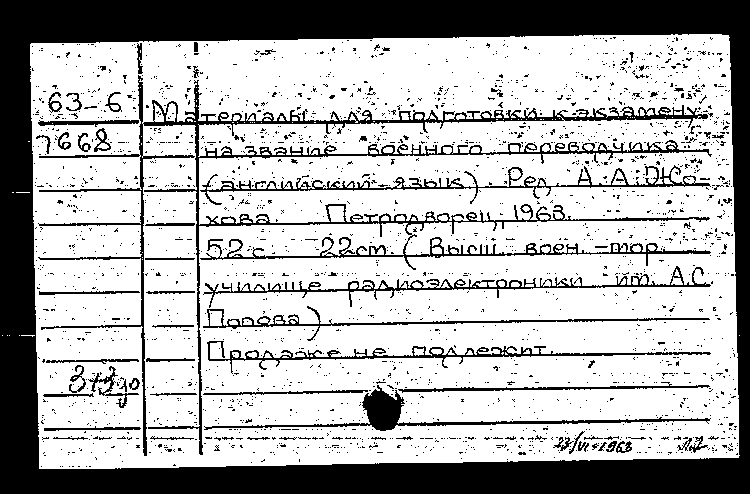 63-6 Материалы для подготовки к экзамену
7668 на звание военного переводчика
(английский язык). Ред. А.А. Жо-
хова. Петродворец, 1963.
52 с. 22 см. (Высш. воен.-мор.
училище радиоэлектроники им. А.С.
Попова).
Продаже не подлежит.
/VI-1963